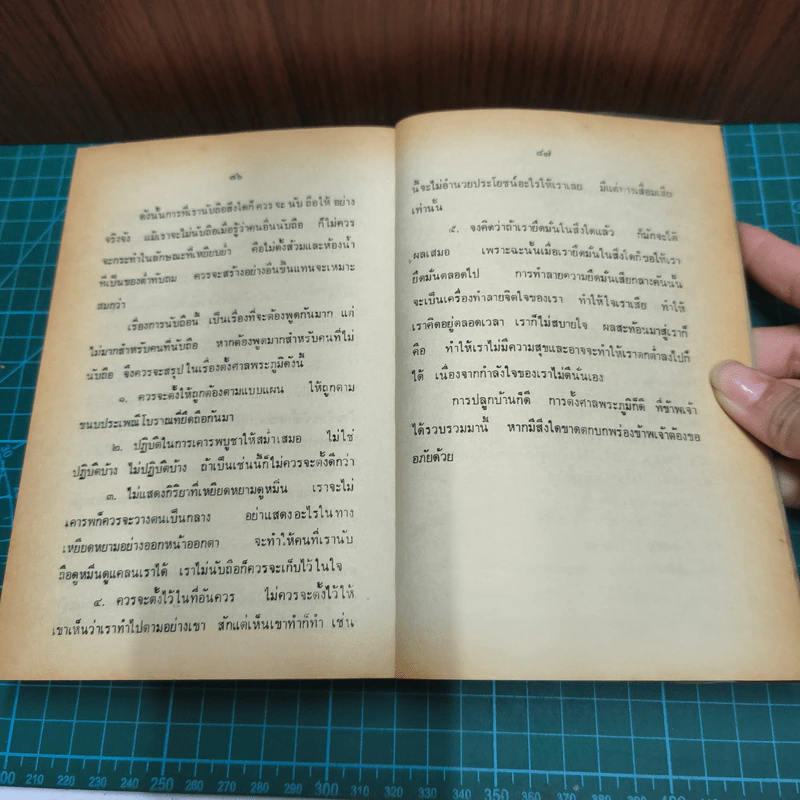 ๘๖
ดังนั้นการที่เรานับถือสิ่งใดก็ควรจะนับถือให้อย่าง
จริงจัง แม้เราจะไม่นับถือเมื่อรู้ว่าคนอื่นนับถือ ก็ไม่ควร
จะกระทำในลักษณะที่เหยียบย่ำ คือไม่ตั้งส้วมและห้องน้ำ
ที่เป็นของต่ำทับถม ควรจะสร้างอย่างอื่นขึ้นแทนจะเหมาะ
สมกว่า
เรื่องการนับถือนี้ เป็นเรื่องที่จะต้องพูดกันมาก แต่
ไม่มากสำหรับคนที่นับถือ หากต้องพูดมากสำหรับคนที่ไม่
นับถือ จึงควรจะสรุปในเรื่องตั้งศาลพระภูมิดังนี้
๑. ควรจะตั้งให้ถูกต้องตามแบบแผน ให้ถูกตาม
ขนบประเพณีโบราณที่ยึดถือกันมา
๒. ปฏิบัติในการเคารพบูชาให้สม่ำเสมอ ไม่ใช่
ปฏิบัติบ้าง ไม่ปฏิบัติบ้าง ถ้าเป็นเช่นนี้ก็ไม่ควรจะตั้งดีกว่า
๓. ไม่แสดงกิริยาที่เหยียดหยามดูหมิ่น เราจะไม่
เคารพก็ควรจะวางตนเป็นกลาง อย่าแสดงอะไรในทาง
เหยียดหยามอย่างออกหน้าออกตา จะทำให้คนที่เรานับ
ถือดูหมิ่นดูแคลนเราได้ เราไม่นับถือก็ควรจะเก็บไว้ในใจ
๔. ควรจะตั้งไว้ในที่อันควร ไม่ควรจะตั้งไว้ให้
เขาเห็นว่าเราทำไปตามอย่างเขา สักแต่เห็นเขาทำก็ทำ เช่น
๘๗
นี้จะไม่อำนวยประโยชน์อะไรให้เราเลย มีแต่ทางเสื่อมเสีย
เท่านั้น
๕. จงคิดว่าถ้าเรายึดมั่นในสิ่งใดแล้ว ก็มักจะได้
ผลเสมอ เพราะฉะนั้นเมื่อเรายึดมั่นในสิ่งใดก็ขอให้เรา
ยึดมั่นตลอดไป การทำลายความยึดมั่นเสียกลางคันนั้น
จะเป็นเครื่องทำลายจิตใจของเรา ทำให้ใจเราเสีย ทำให้
เราคิดอยู่ตลอดเวลา เราก็ไม่สบายใจ ผลสะท้อนมาสู่เราก็
คือ ทำให้เราไม่มีความสุขและอาจจะทำให้เราตกต่ำลงไปก็
ได้ เนื่องจากกำลังใจของเราไม่ดีนั่นเอง
การปลูกบ้านก็ดี การตั้งศาลพระภูมิก็ดี ที่ข้าพเจ้า
ได้รวบรวมมานี้ หากมีสิ่งใดขาดตกบกพร่องข้าพเจ้าต้องขอ
อภัยด้วย
200 210 220 230 240 250 260 270 280 290 300 310 320 330 340 350